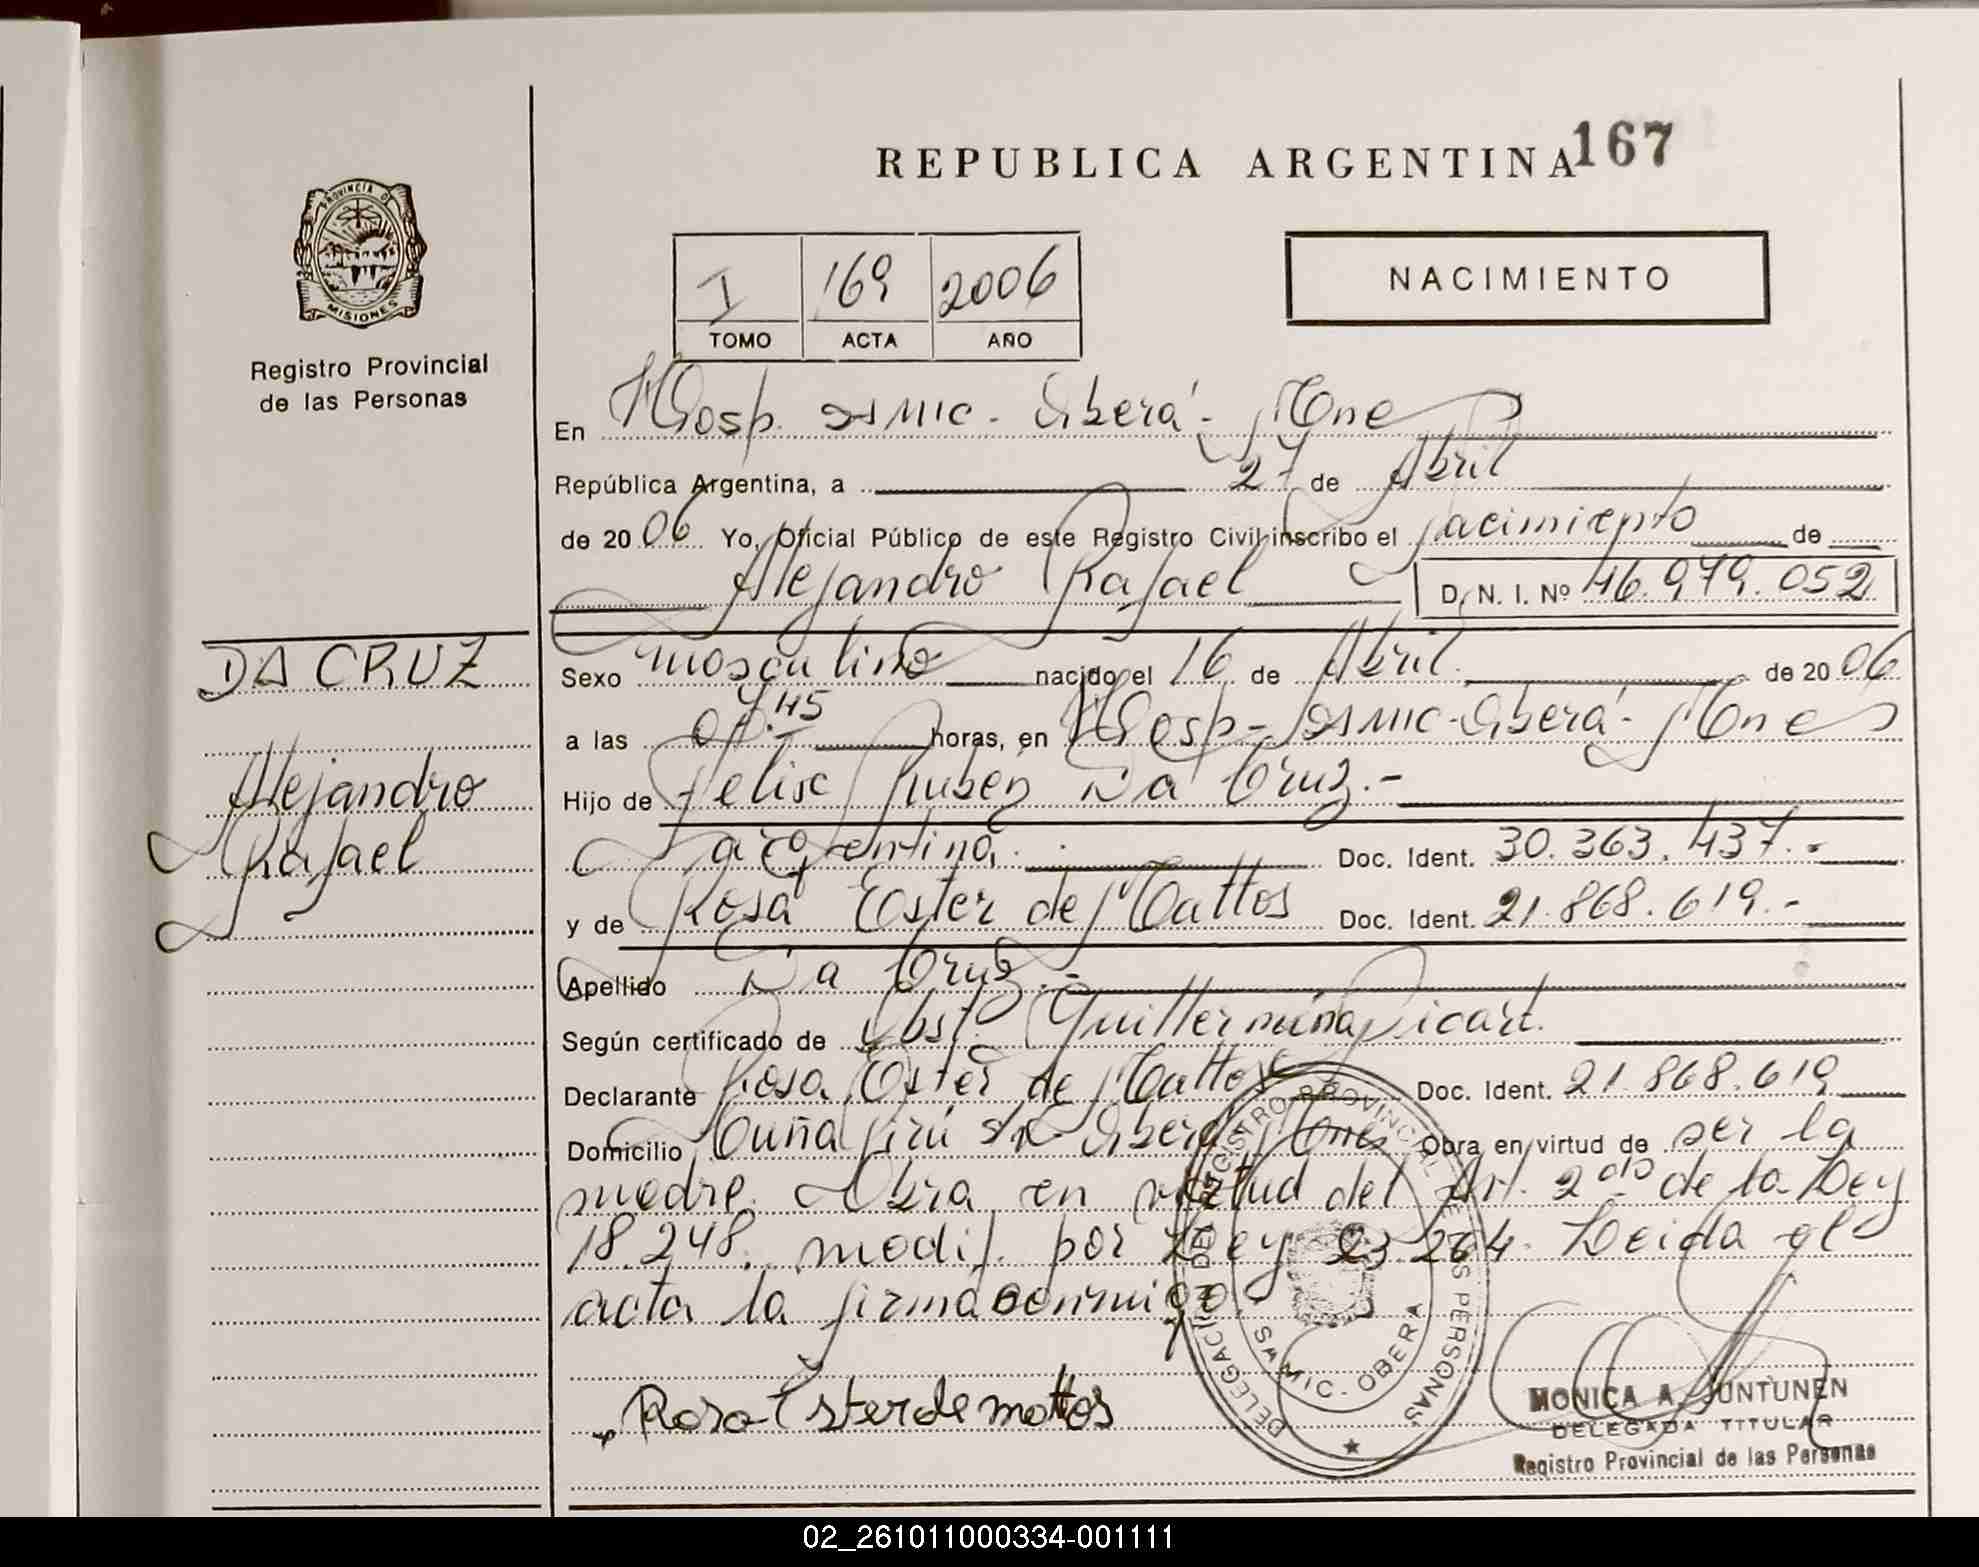 REPUBLICA ARGENTINA 167
PROVINCIA DE
MISIONES
Registro Provincial
de las Personas
I 169 2006
TOMO ACTA AÑO
NACIMIENTO
En Hosp. SAMIC - Oberá - Mnes
República Argentina, a 27 de Abril
de 2006 Yo, Oficial Público de este Registro Civil inscribo el nacimiento de
Alejandro Rafael D. N. I. Nº 46.979.052
DA CRUZ
Alejandro
Rafael
Sexo masculino nacido el 16 de Abril de 2006
a las horas, en Hosp - SAMIC - Oberá - Mnes
Hijo de Felix Ruben Da Cruz.-
argentina. Doc. Ident. 30.363.437.-
y de Rosa Ester de Mattos Doc. Ident. 21.868.619.-
Apellido Da Cruz.-
Según certificado de Obst. Guillermina Picart.
Declarante Rosa Ester de Mattos Doc. Ident. 21.868.619
Domicilio Cuña Pirú s/n Oberá Mnes Obra en virtud de ser la
madre. Obra en virtud del Art. 2do de la Ley
18.248. modif. por Ley 23.264. Leida el
acta la firma conmigo.
Rosa Ester de mattos
DELEGACION DEL REGISTRO PROVINCIAL DE LAS PERSONAS
SAMIC - OBERA
MONICA A. JUNTUNEN
DELEGADA TITULAR
Registro Provincial de las Personas
02_261011000334-001111